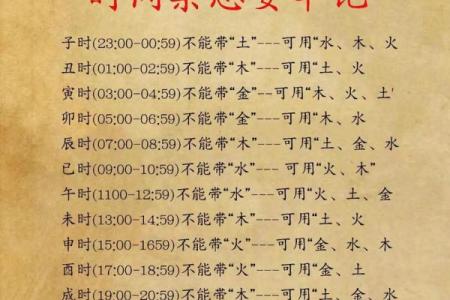 时间禁忌要牢记
子时(23:00-00:59)不能带“土”---可用“水、木、火
丑时(01:00-02:59)不能带“木”---土、火
寅时(03:00-04:59)不能带“金”---可用“木、火、土"
卯时(05:00-06:59)不能带“金”---可用“木、水
辰时(07:00-08:59)不能带“木”---可用“土、金、水
已时(09:00-10:59)不能带“水”--- 可用“火、木”
午时(1100-12:59)不能带“水”---可用“火、土、金
未时(13:00-14:59)不能带“木”---可用“土、火
申时(15:00-1659)不能带“火”---可用“金、水、木
酉时(17:00-18:59)不能带“火”---可用“金、土、水
戌时(19:00-20:59)不能带“木”---可用“土、火、水